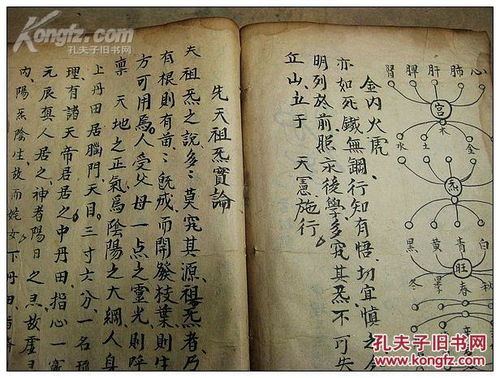 Kongfz.com
孔夫子旧书网
心 肺 肝 脾 腎
宮
木
金 土 水
炁
白 青 黃 黑
旺
秋 春 冬
金內火虎
亦如死鐵無鋼行知有悟切宜慎之
明列於前照示後學多究其炁不可失
丘山立于 天憲施行
先天祖炁實論
夫祖炁之說多々莫究其源祖炁者乃
有根則有苗々既成而開發枝葉則生
方可用爲人受父母一点之靈光則呼
稟 天地之正氣爲陰陽之大綱人身
上丹田居腦門天目三寸六分一名
理有諸天帝居之中丹田指心一
元辰眞人居之神者陽日之炁故
內陽在陰生故而姹女下丹田
孔夫子旧书网
www.kongfz.com